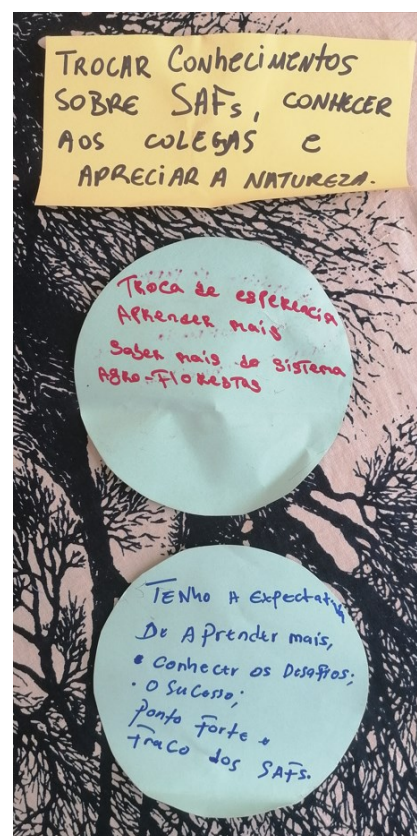 TROCAR CONHECIMENTOS
SOBRE SAFs, CONHECER
AOS COLEGAS e
APRECIAR A NATUREZA.
Troca de esperiencia
Aprender mais
Saber mais do sistema
Agro-Florestas
TENHO A Expectativa
De Aprender mais,
• Conhecer os Desafios;
• O Sucesso;
ponto Forte e
fraco dos SAFs.